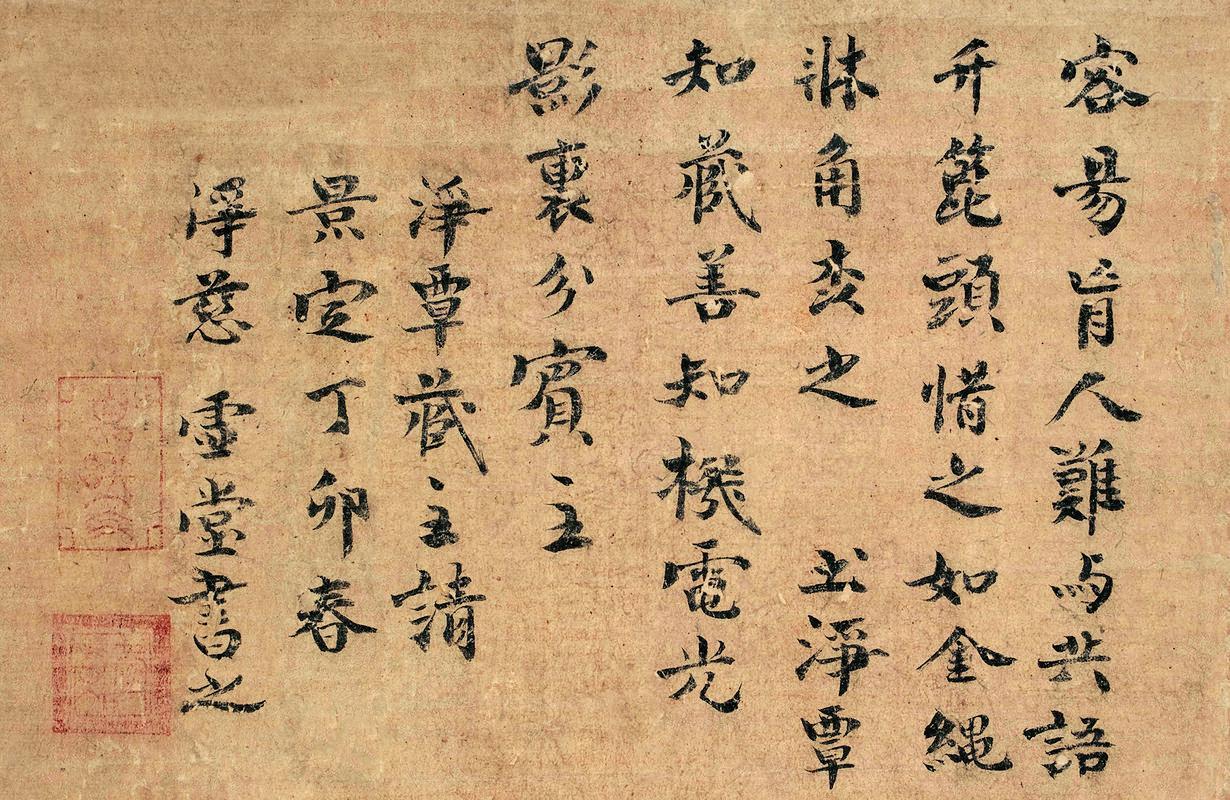 容易肯人難与共語
篦頭惜之如金縄
牀角弃之 淨覃
知藏善知機電光
影裏分賓主
淨覃藏主請
景定丁卯春
淨慈 虛堂書之